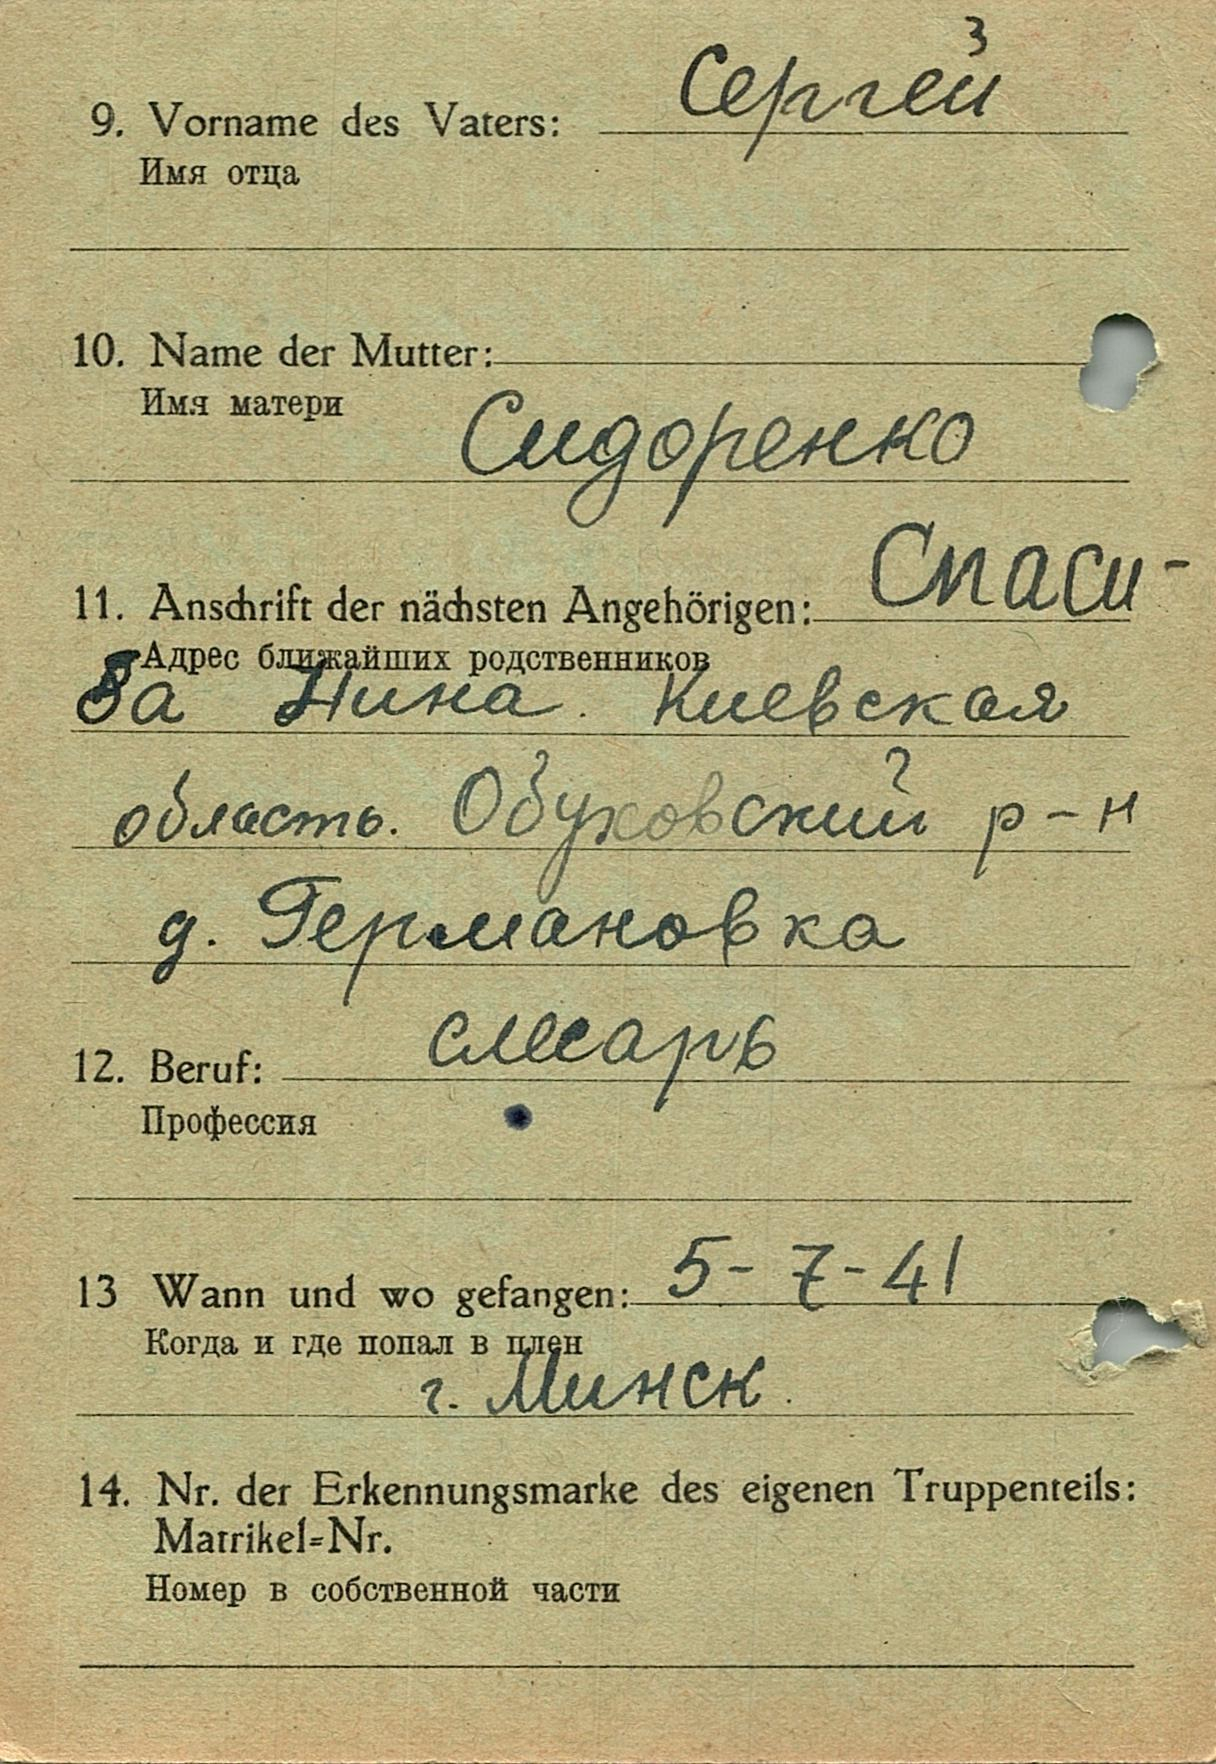 3
9. Vorname des Vaters: Сергей
Имя отца
10. Name der Mutter:
Имя матери Сидоренко
11. Anschrift der nächsten Angehörigen: Спаси-
Адрес ближайших родственников
ва Нина. Киевская
область. Обуховский р-н
д. Германовка
12. Beruf: слесарь
Профессия
13 Wann und wo gefangen: 5-7-41
Когда и где попал в плен
г. Минск.
14. Nr. der Erkennungsmarke des eigenen Truppenteils:
Matrikel=Nr.
Номер в собственной части